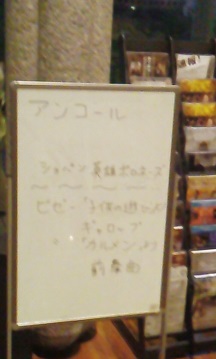 アンコール
ショパン 英雄ポロネーズ
ビゼー 「子供の遊び」より
ギャロップ
〃 「カルメン」より
前奏曲